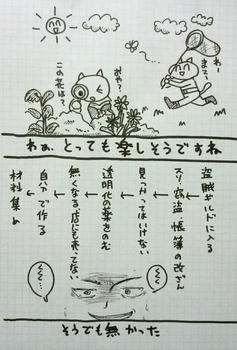 わー
まてー
おや?
この花は?
わぁ、とっても楽しそうですね
盗賊ギルドに入る
↓
スリ・窃盗・帳簿の改ざん
↓
見つかってはいけない
↓
透明化の薬をのむ
↓
無くなる、店にも売ってない
↓
自力で作る
↓
材料集め
くく…
くく…
そうでも無かった